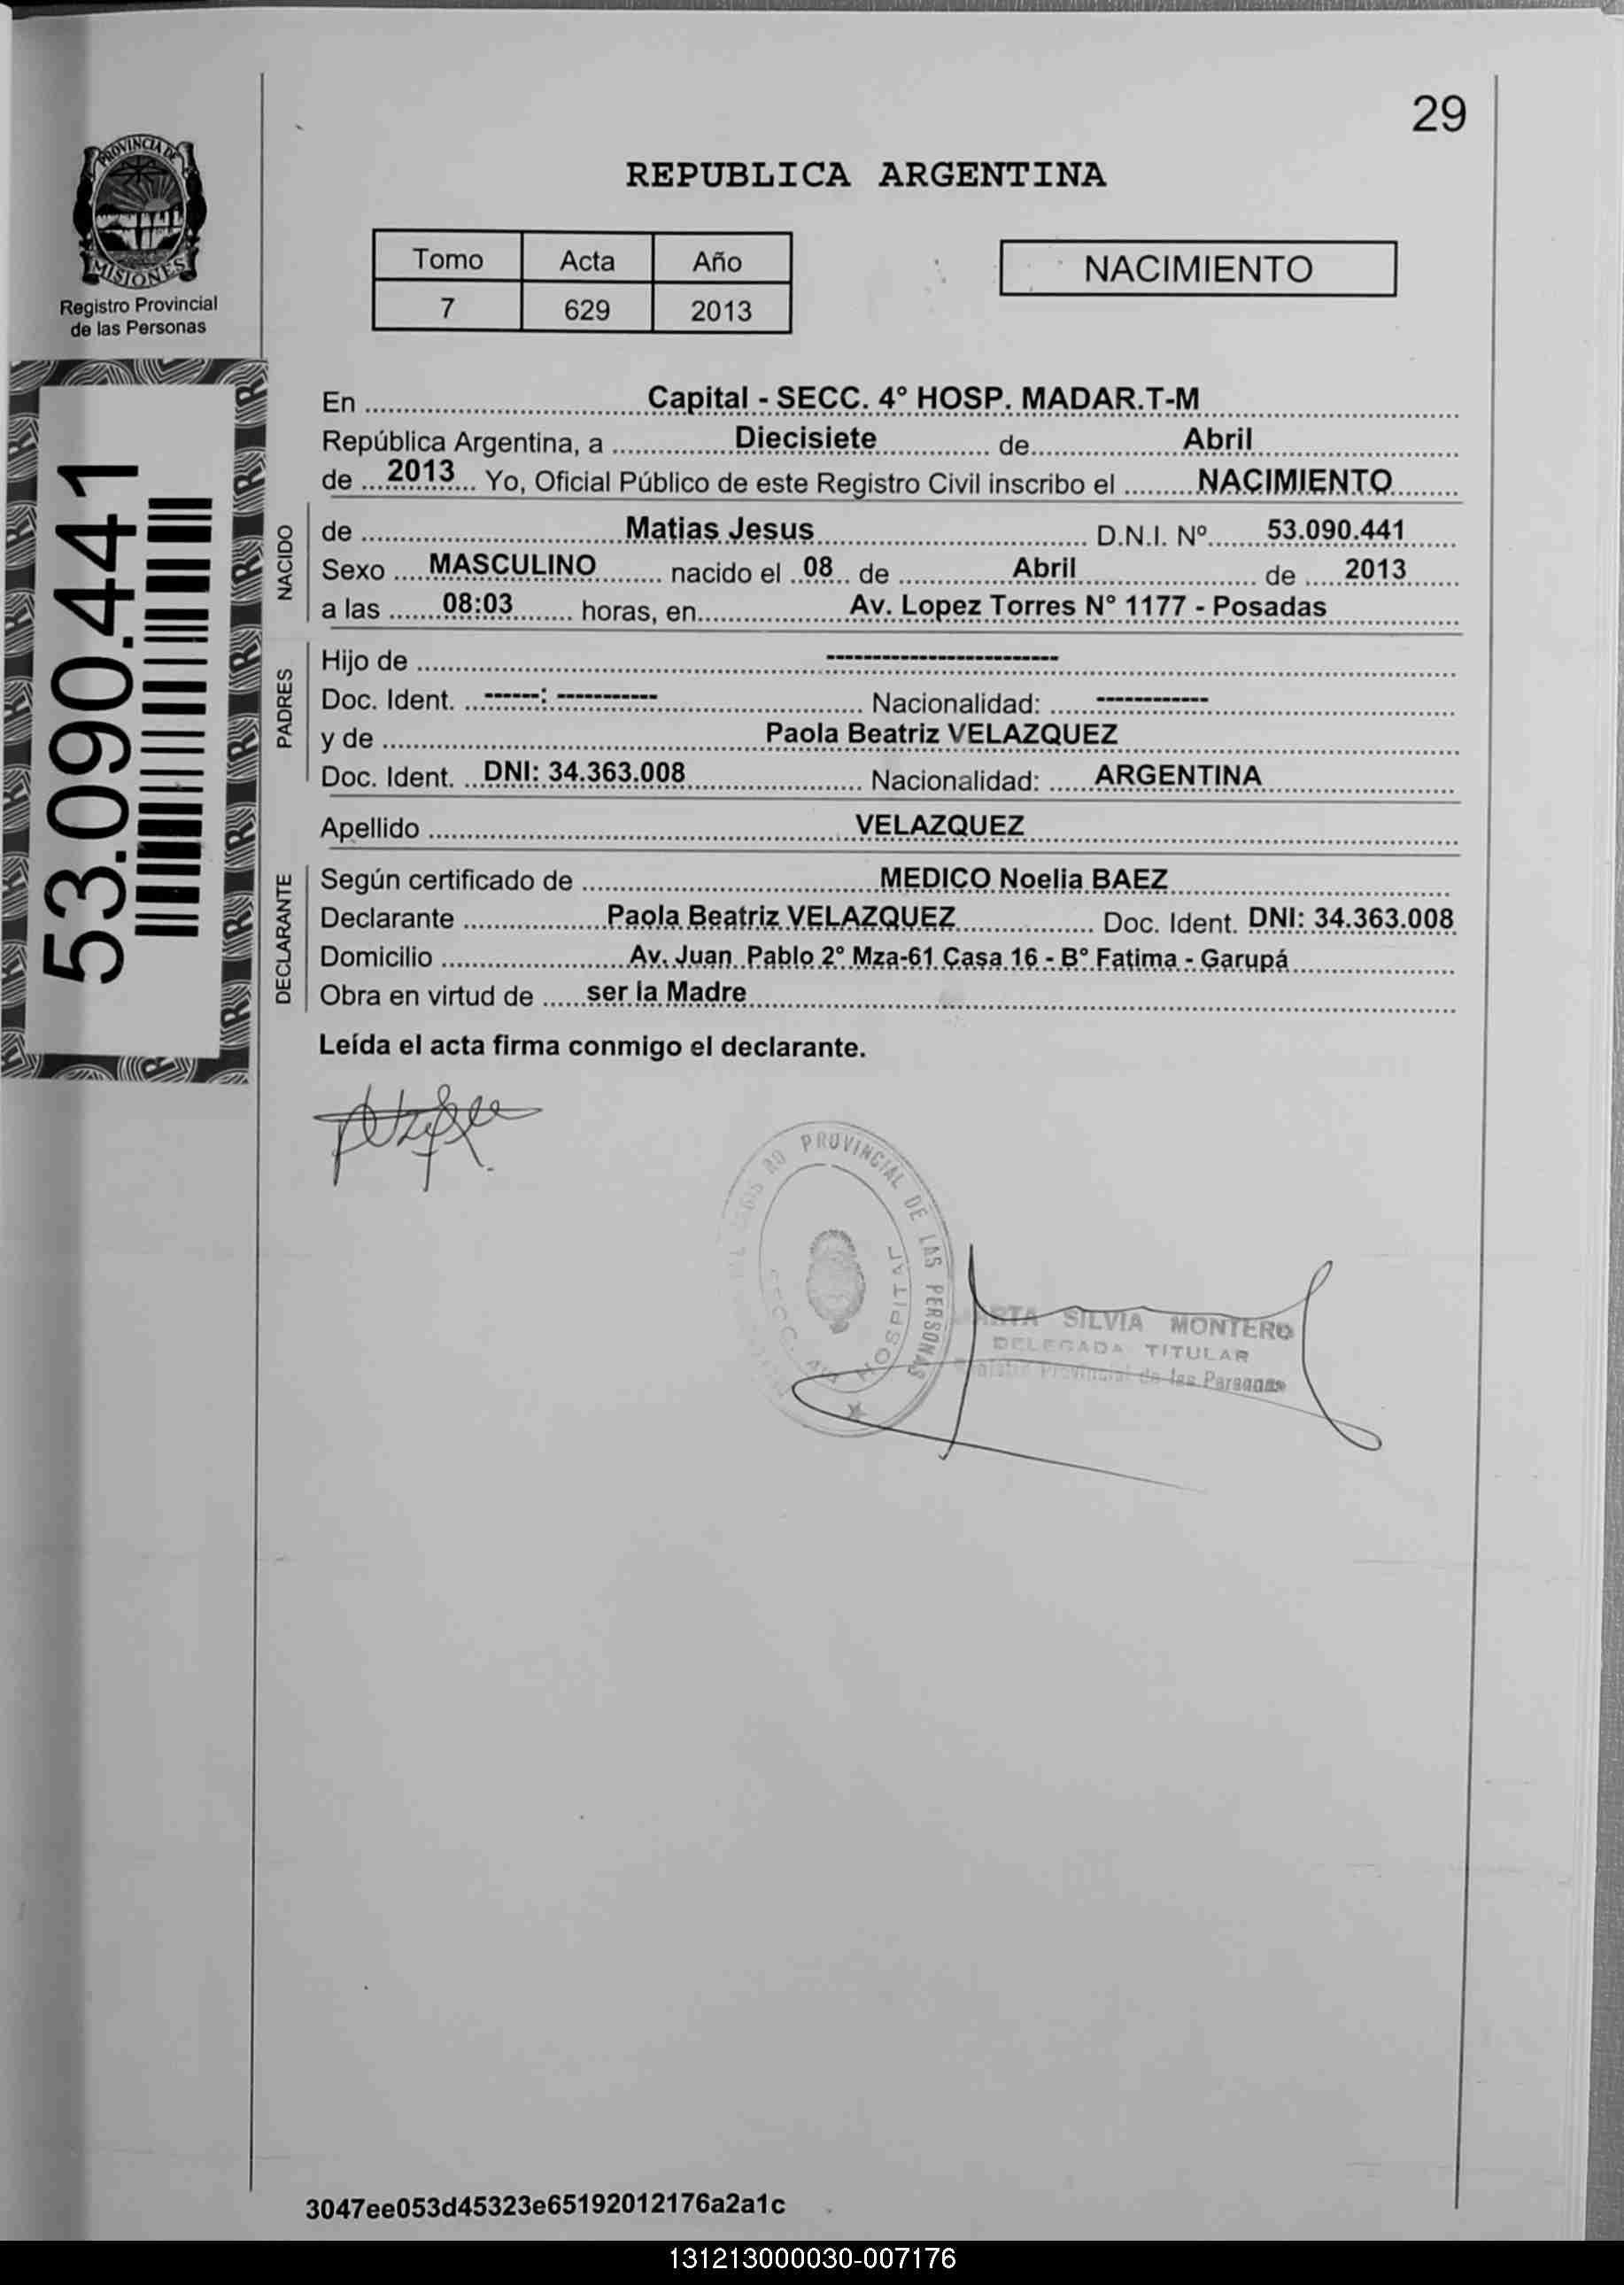 29
PROVINCIA DE
MISIONES
Registro Provincial
de las Personas
REPUBLICA ARGENTINA
Tomo Acta Año
7 629 2013
NACIMIENTO
53.090.441
En Capital - SECC. 4° HOSP. MADAR.T-M
República Argentina, a Diecisiete de Abril
de 2013 Yo, Oficial Público de este Registro Civil inscribo el NACIMIENTO
NACIDO
de Matias Jesus D.N.I. Nº 53.090.441
Sexo MASCULINO nacido el 08 de Abril de 2013
a las 08:03 horas, en Av. Lopez Torres N° 1177 - Posadas
PADRES
Hijo de -------------------------
Doc. Ident. ------: ----------- Nacionalidad: ------------
y de Paola Beatriz VELAZQUEZ
Doc. Ident. DNI: 34.363.008 Nacionalidad: ARGENTINA
Apellido VELAZQUEZ
DECLARANTE
Según certificado de MEDICO Noelia BAEZ
Declarante Paola Beatriz VELAZQUEZ Doc. Ident. DNI: 34.363.008
Domicilio Av. Juan Pablo 2° Mza-61 Casa 16 - B° Fatima - Garupá
Obra en virtud de ser la Madre
Leída el acta firma conmigo el declarante.
PROVINCIAL DE LAS PERSONAS
HOSPITAL
MARTA SILVIA MONTERO
DELEGADA TITULAR
Provincial de las Personas
3047ee053d45323e65192012176a2a1c
131213000030-007176